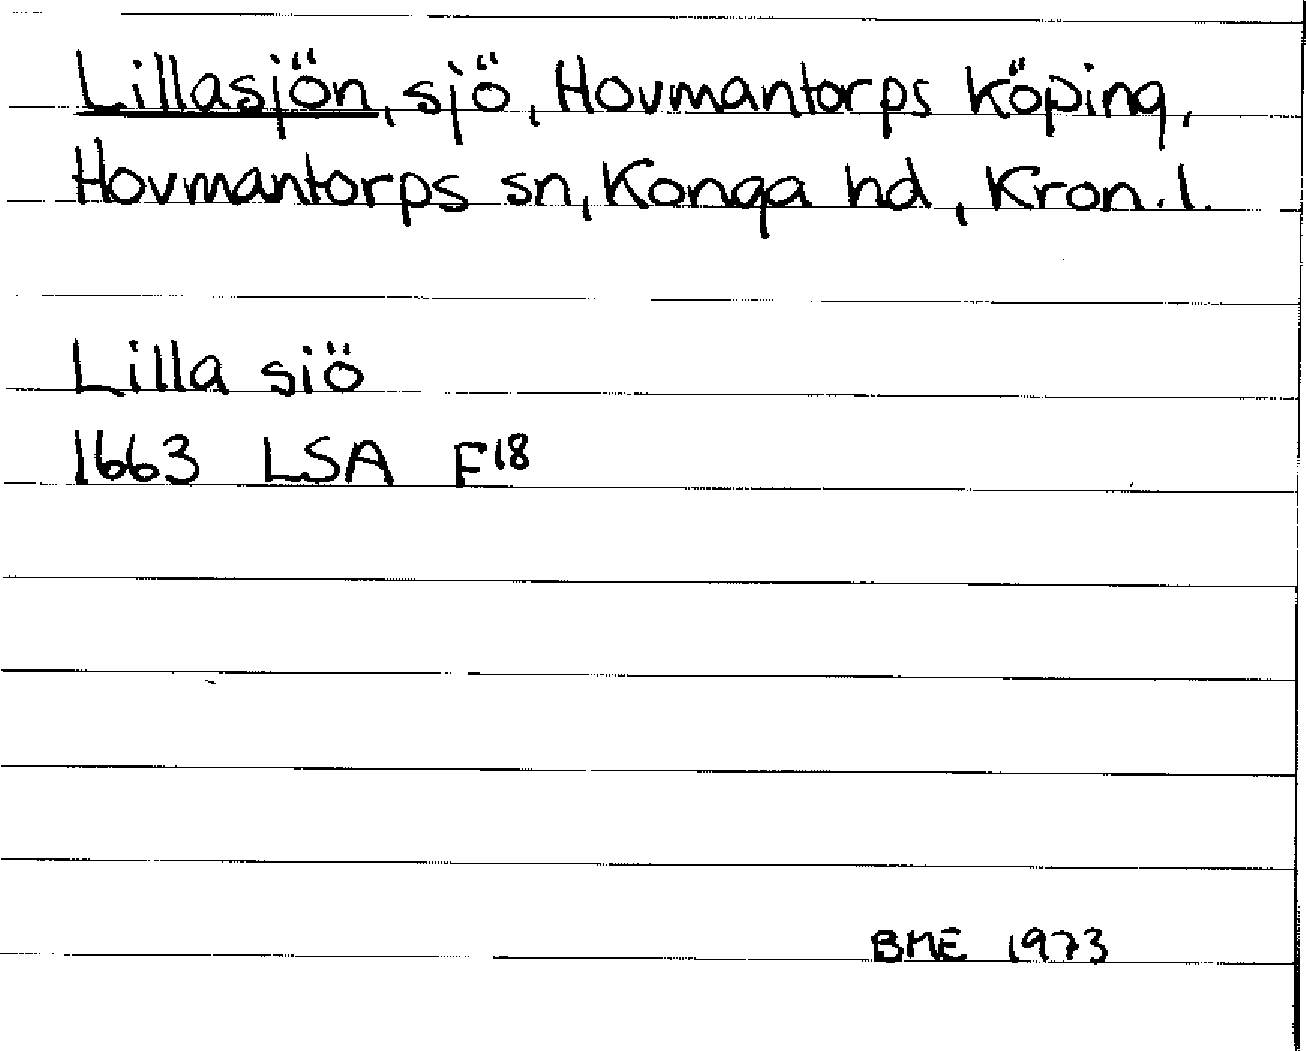 Lillasjön, sjö, Hovmantorps köping,
Hovmantorps sn, Konga hd, Kron. l.
Lilla siö
1663 LSA F18
BME 1973